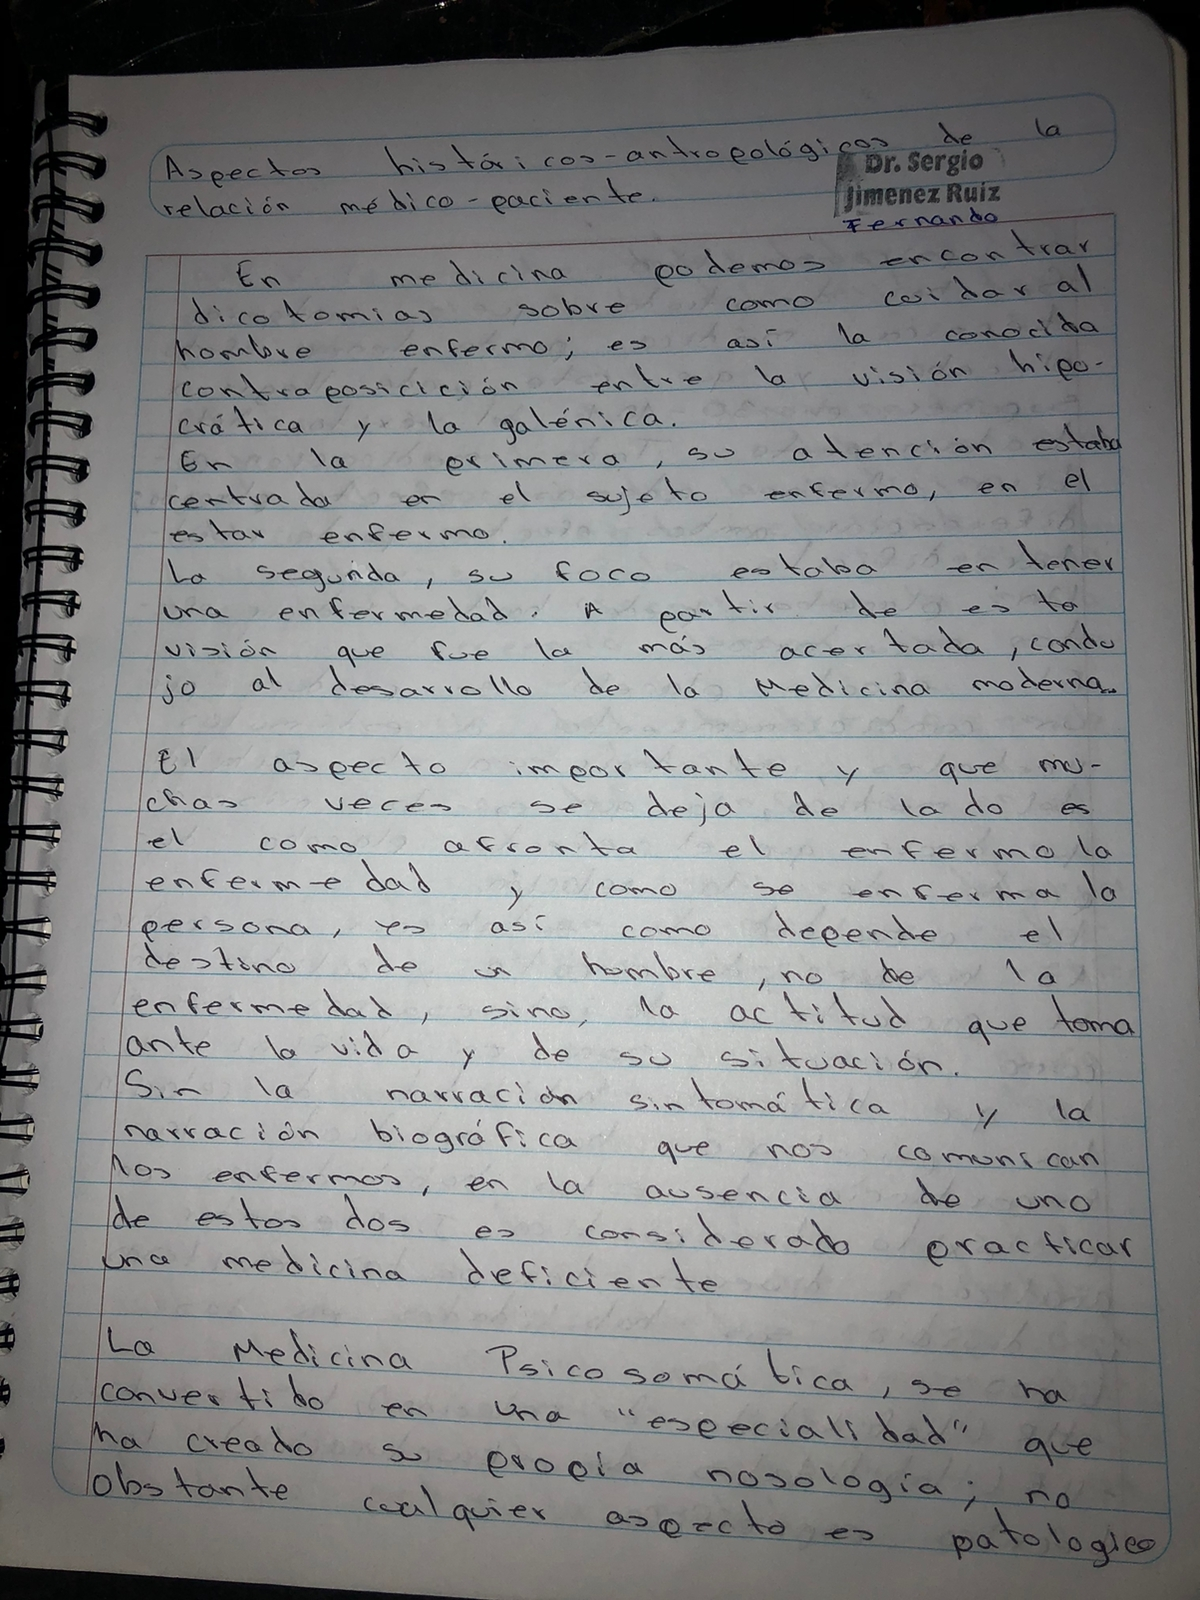 Aspectos históricos-antropológicos de la
relación médico-paciente.
Dr. Sergio
Jimenez Ruiz
Fernando
En medicina podemos encontrar
dicotomias sobre como cuidar al
hombre enfermo; es así la conocida
contraposicición entre la visión hipo-
crática y la galénica.
En la primera, su atención estaba
centrada en el sujeto enfermo, en el
estar enfermo.
La segunda, su foco estaba en tener
una enfermedad. A partir de esta
visión que fue la más acertada, condu
jo al desarrollo de la Medicina moderna.
El aspecto importante y que mu-
chas veces se deja de lado es
el como afronta el enfermo la
enfermedad y como se enferma la
persona, es así como depende el
destino de un hombre, no de la
enfermedad, sino, la actitud que toma
ante la vida y de su situación.
Sin la narración sintomática y la
narración biográfica que nos comunican
los enfermos, en la ausencia de uno
de estos dos es considerado practicar
una medicina deficiente
La Medicina Psicosomática, se ha
convertido en una "especialidad" que
ha creado su propia nosología; no
obstante cualquier aspecto es patologico